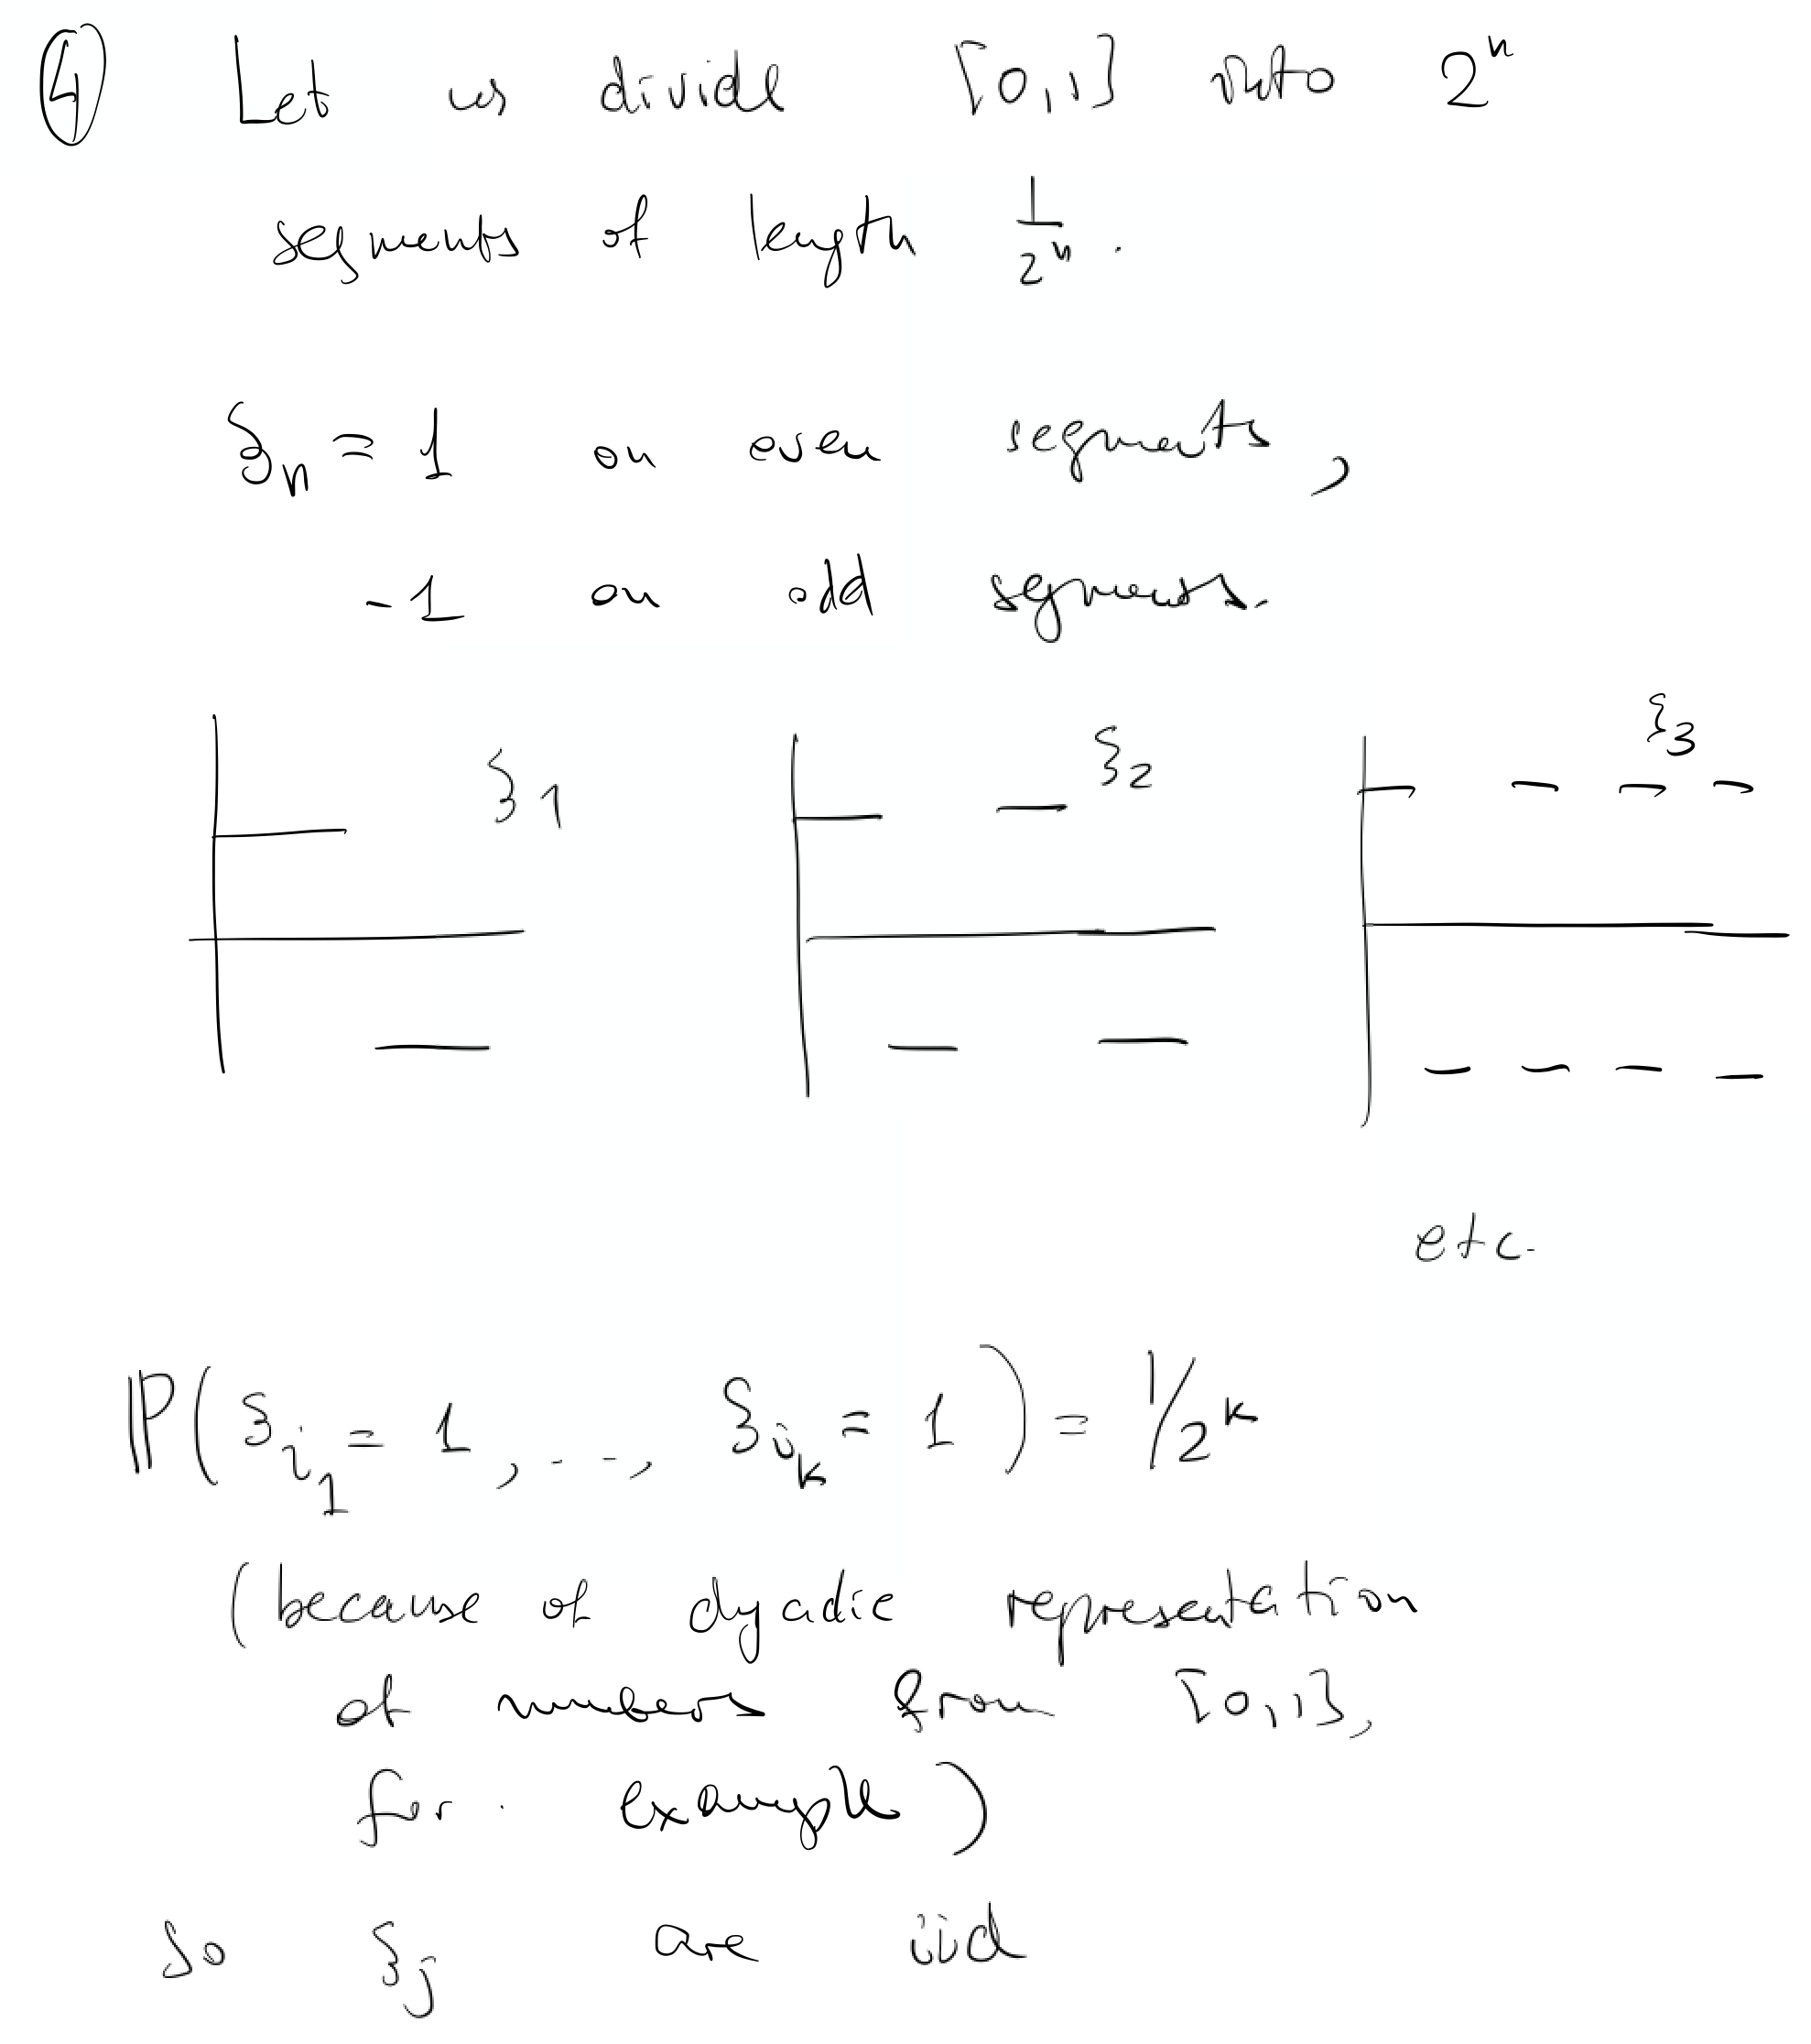 ④ Let us divide [0,1] into 2^n
segments of length 1/2^n.
ξ_n = 1 on even segments,
-1 on odd segments.
ξ_1 ξ_2 ξ_3
etc.
ℙ(ξ_{i_1} = 1, ..., ξ_{i_k} = 1) = 1/2^k
(because of dyadic representation
of numbers from [0,1],
for example)
so ξ_j are iid